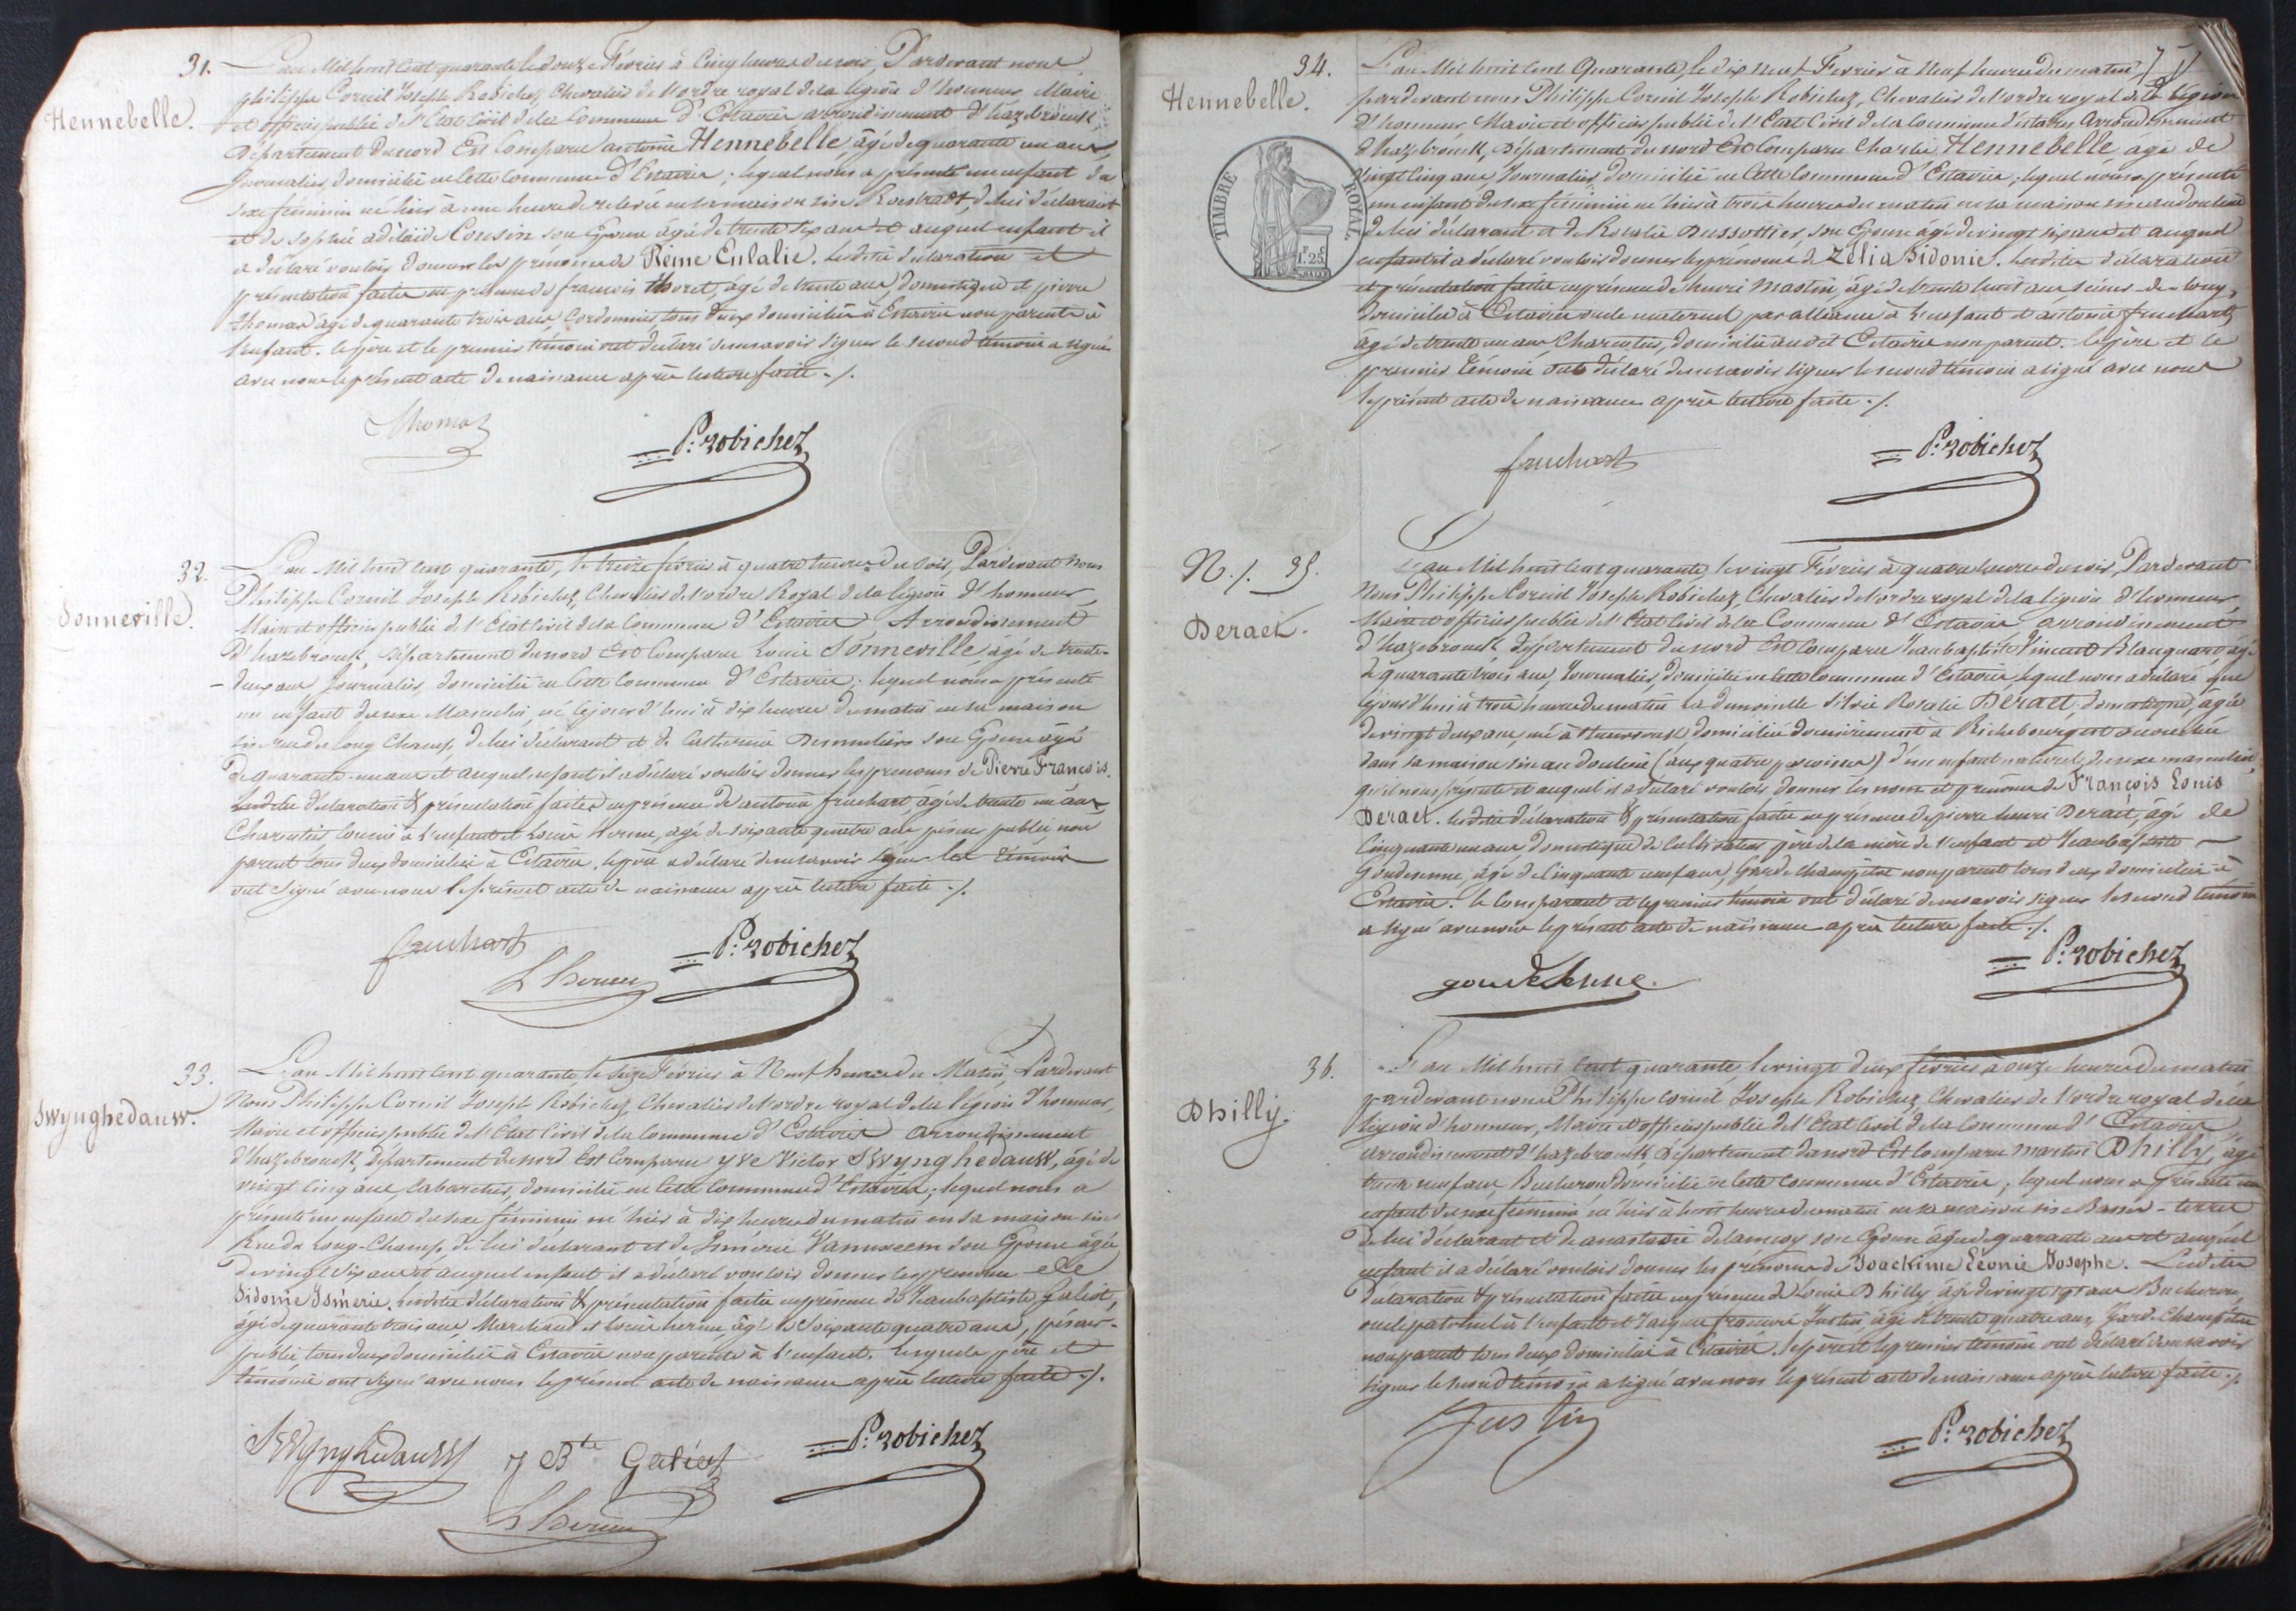 31.
Hennebelle.
L'an Mil huit Cent quarante le douze Février à Cinq heures du soir, Pardevant nous
philippe Corneil Joseph Robichez, Chevalier de l'ordre royal de la légion d'honneur Maire
et officier public de l'Etat Civil de la Commune d'Estaires arrondissement d'hazebrouck
Département du nord Est Comparu antoine Hennebelle, âgé de quarante un ans,
Journalier, domicilié en cette Commune d'Estaires; lequel nous a présenté un enfant du
sexe féminin né hier à une heure de relevée en sa maison sise de lui déclarant
et de sophie adélaïde Cousin son Epouse âgée de trente six ans et auquel enfant il
a déclaré vouloir donner les prénoms de Reine Eulalie. Lesdites déclaration et
présentation faites en présence de francois thoret, âgé de trente ans, domestique et pierre
thomas âgé de quarante trois ans, Cordonnier, tous deux domiciliés à Estaires non parents à
l'enfant. le père et le premier témoin ont déclaré ne savoir signer le second témoin a signé
avec nous le présent acte de naissance après lecture faite ./.
Thomas
P: Robichez
32.
Sonneville.
L'an Mil huit Cent quarante, le treize février à quatre heures du soir, Pardevant Nous
Philippe Corneil Joseph Robichez, Chevalier de l'ordre Royal de la légion d'honneur,
Maire et officier public de l'Etat Civil de la Commune d'Estaires, Arrondissement
d'hazebrouck, Département du nord Est Comparu Louis Sonneville âgé de trente-
deux ans Journalier, domicilié en cette Commune d'Estaires; lequel nous a présenté
un enfant du sexe Masculin, né Cejourd'hui à dix heures du matin en sa maison
sise rue du Long Champ, de lui déclarant et de Catherine son Epouse âgée
de quarante-un ans et auquel enfant il a déclaré vouloir donner les prenoms de Pierre François.
Lesdites déclaration & présentation faites en présence de antoine fruchart, âgé de trente un ans,
Charcutier Cousin à l'enfant et Louis herne, âgé de soixante quatre ans peseur public non
parent tous deux domiciliés à Estaires. le père a déclaré ne savoir signer les témoins
ont signé avec nous le présent acte de naissance après lecture faite ./.
fruchart
L herne
P: Robichez
33.
Swynghedauw.
L'an Mil huit Cent quarante, le Seize Février à Neuf heures du Matin, Pardevant
Nous Philippe Corneil Joseph Robichez, Chevalier de l'ordre royal de la légion d'honneur,
Maire et officier public de l'Etat Civil de la Commune d'Estaires arrondissement
d'hazebrouck, Département du nord Est Comparu Yve Victor Swynghedauw, âgé de
vingt Cinq ans, Cabaretier, domicilié en cette Commune d'Estaires; lequel nous a
présenté un enfant du sexe féminin né hier à dix heures du matin en sa maison sise
Rue du Long-Champ, de lui déclarant et de Isméric Vanuxeem son Epouse âgée
de vingt six ans et auquel enfant il a déclaré vouloir donner les prénoms de
Sidonie Ismérie. Lesdites déclaration & présentation faites en présence de Jeanbaptiste Galiot,
âgé de quarante trois ans, Marchand et Louis herne, âgé de Soixante quatre ans, peseur-
public, tous deux domiciliés à Estaires non parents à l'enfant. Lesquels père et
témoins ont signé avec nous le présent acte de naissance après lecture faite ./.
Swynghedauw
J Bte Galiot
L herne
P: Robichez
34.
Hennebelle.
TIMBRE ROYAL
1F. 25
L'an Mil huit Cent Quarante, le dix neuf Fevrier à Neuf heures du matin
pardevant nous Philippe Corneil Joseph Robichez, Chevalier de l'ordre royal de la légion
d'honneur, Maire et officier public de l'Etat Civil de la Commune d'estaires Arrondissement
d'hazebrouck, Département du nord Est Comparu Charles Hennebelle âgé de
vingt Cinq ans, Journalier, domicilié en Cette Commune d'Estaires; lequel nous a présenté
un enfant du sexe féminin né hier à trois heures du matin en sa maison sise au doulieu
de lui déclarant et de Rosalie Dussottier, son Epouse âgée de vingt six ans et auquel
enfant il a déclaré vouloir donner les prénoms de Zélia Sidonie. Lesdites déclaration
et présentation faites en présence de henri Mastin, âgé de trente huit ans, scieur-de-long,
domicilié à Estaires oncle maternel par alliance à l'enfant et antoine fruchart,
âgé de trente un ans, Charcutier, domicilié audit Estaires non parent. le père et le
premier témoin ont déclaré ne savoir signer le second témoin a signé avec nous
le présent acte de naissance après lecture faite ./.
fruchart
P: Robichez
N. /. 35.
Deraet.
L'an Mil huit Cent quarante, le vingt Février à quatre heures du soir, Pardevant
Nous Philippe Corneil Joseph Robichez, Chevalier de l'ordre royal de la légion d'honneur,
Maire et officier public de l'Etat Civil de la Commune d'Estaires arrondissement
d'hazebrouck Département du nord Est Comparu Jeanbaptiste Vincent Blanquart, âgé
de quarante trois ans, Journalier, domicilié en cette Commune d'Estaires, lequel nous a déclaré que
Cejourd'hui à trois heures du matin la demoiselle Rosalie Deraet, domestique, âgée
de vingt deux ans, née à domiciliée dernièrement à Richebourg est accouchée
dans sa maison sise au Doulieu (aux quatre paroisses) d'un enfant naturel du sexe masculin,
qu'il nous présente et auquel il a déclaré vouloir donner les nom et prénoms de François Louis
Deraet. Lesdites déclaration & présentation faites en présence de pierre henri Deraet, âgé de
Cinquante un ans, domestique de Cultivateur père de la mère de l'enfant et Jeanbaptiste
Goudesenne âgé de Cinquante neuf ans, Garde Champêtre non parent tous deux domiciliés à
Estaires. le Comparant et le premier témoin ont déclaré ne savoir signer le second témoin
a signé avec nous le présent acte de naissance après lecture faite ./.
goudesenne.
P: Robichez
36.
Dhilly.
L'an Mil huit Cent quarante, le vingt deux février à onze heures du matin
pardevant nous Philippe Corneil Joseph Robichez, Chevalier de l'ordre royal de la
légion d'honneur, Maire et officier public de l'Etat Civil de la Commune d'Estaires
arrondissement d'hazebrouck, Département du nord Est Comparu Martin Dhilly, âgé
trente neuf ans, Bucheron domicilié en cette Commune d'Estaires; lequel nous a présenté un
enfant du sexe féminin né hier à huit heures du matin en sa maison sise Basse-terre
de lui déclarant et de anastasie delannoy son Epouse âgée de quarante ans et auquel
enfant il a déclaré vouloir donner les prénoms de Joackime Léonie Josephe. Lesdites
déclaration & présentation faites en présence de Louis Dhilly âgé de vingt sept ans Bucheron,
oncle paternel à l'enfant et Jacques francois Justin, âgé de trente quatre ans, Garde Champêtre
non parent tous deux domiciliés à Estaires. le père et le premier témoin ont déclaré ne savoir
signer le second témoin a signé avec nous le présent acte de naissance après lecture faite ./.
Justin
P: Robichez